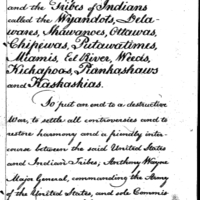 and the Tribes of Indians
called the Wyandots, Dela-
wares, Shawanoes, Ottawas,
Chipewas, Putawatimes,
Miamis, Eel River, Weeás,
Kickapoos, Piankashaws
and Kaskaskias.
To put an end to a destructive
War, to settle all controversies and to
restore harmony and a friendly inter-
course between the said United States
and Indian Tribes, Anthony Wayne
Major General, commanding the Army
of the United States, and sole Commis